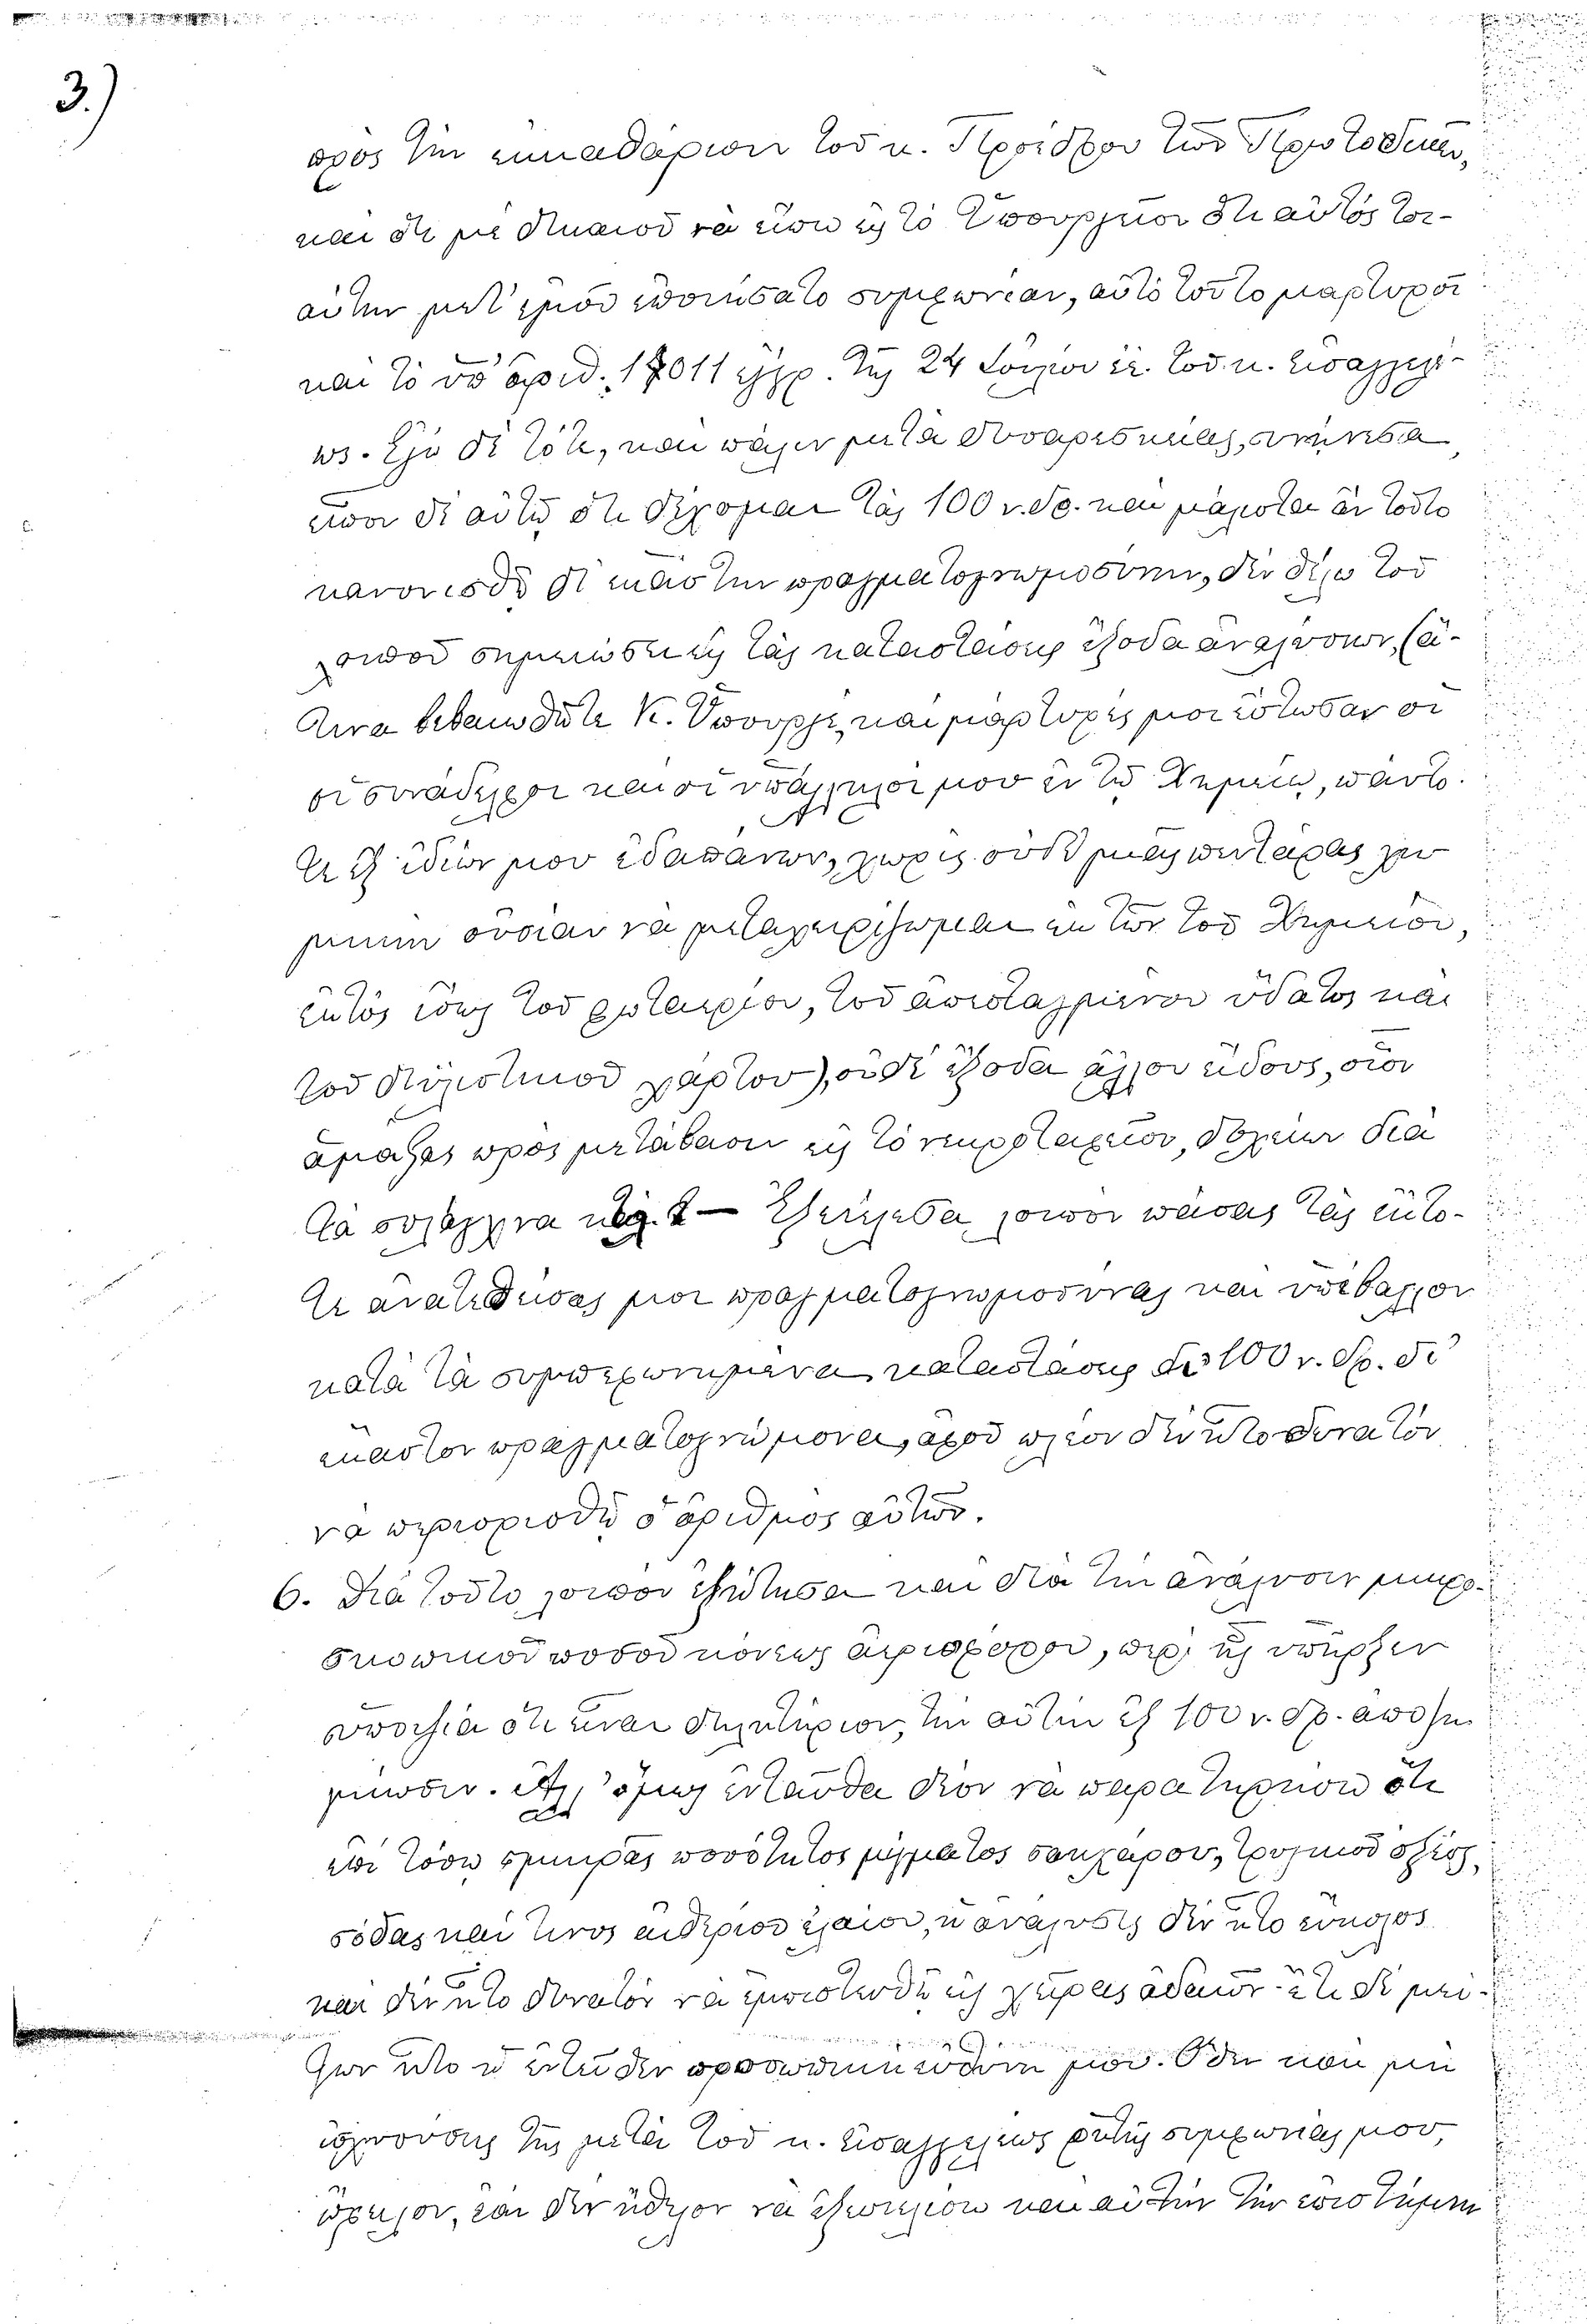 3.)
πρὸς τὴν εὐκαθάρισιν τοῦ κ. Προέδρου τῶν Πρωτοδικῶν,
καὶ ὅτι μὲ δικαιοῖ νὰ εἴπω εἰς τὸ Ὑπουργεῖον ὅτι αὐτὸς τοι-
αύτην μετ' ἐμοῦ ἐποιήσατο συμφωνίαν, αὐτὸ τοῦτο μαρτυρεῖ
καὶ τὸ ὑπ' ἀριθ. 17011 ἔγγρ. τῆς 24 Ἰουλίου ἐ.ἔ. τοῦ κ. Εἰσαγγελέ-
ως. Ἐγὼ δὲ τότε, καὶ πάλιν μετὰ δυσαρεσκείας, συνῄνεσα,
εἶπον δὲ αὐτῷ ὅτι δέχομαι τὰς 100 ν. δρ. καὶ μάλιστα ἂν τοῦτο
κανονισθῇ δι' ἑκάστην πραγματογνωμοσύνην, δὲν θέλω τοῦ
λοιποῦ σημειώσει εἰς τὰς καταστάσεις ἔξοδα ἀναλύσεων, (ἅ-
τινα βεβαιωθῆτε Κ. Ὑπουργέ, καὶ μάρτυρές μοι ἔστωσαν οἱ
οἱ συνάδελφοι καὶ οἱ ὑπάλληλοί μου ἐν τῷ Χημείῳ, πάντο-
τε ἐξ ἰδίων μου ἐδαπάνων, χωρὶς οὐδὲ μιᾶς πεντάρας χη-
μικὴν οὐσίαν νὰ μεταχειρίζωμαι ἐκ τῶν τοῦ Χημείου,
ἐκτὸς ἴσως τοῦ φωταερίου, τοῦ ἀπεσταγμένου ὕδατος καὶ
τοῦ διϋλιστικοῦ χάρτου), οὐδὲ ἔξοδα ἄλλου εἴδους, οἷον
ἁμάξας πρὸς μετάβασιν εἰς τὸ νεκροταφεῖον, δοχείων διὰ
τὰ σπλάγχνα κλπ. — Ἐξετέλεσα λοιπὸν πάσας τὰς ἔκτο-
τε ἀνατεθείσας μοι πραγματογνωμοσύνας καὶ ὑπέβαλλον
κατὰ τὰ συμπεφωνημένα καταστάσεις ἐκ 100 ν. δρ. δι'
ἕκαστον πραγματογνώμονα, ἀφοῦ πλέον δὲν ἦτο δυνατὸν
νὰ περιορισθῇ ὁ ἀριθμὸς αὐτῶν.
6. Διὰ τοῦτο λοιπὸν ἐζήτησα καὶ διὰ τὴν ἀνάλυσιν μικρο-
σκοπικοῦ ποσοῦ κόνεως ἀεριοφόρου, περὶ ἧς ὑπῆρξεν
ὑποψία ὅτι εἶναι δηλητήριον, τὴν αὐτὴν ἐξ 100 ν. δρ. ἀποζη-
μίωσιν. Ἀλλ' ὅμως ἐνταῦθα δέον νὰ παρατηρήσω ὅτι
ἐπὶ τόσῳ σμικρᾶς ποσότητος μίγματος σακχάρου, τρυγικοῦ ὀξέος,
σόδας καί τινος αἰθερίου ἐλαίου, ἡ ἀνάλυσις δὲν ἦτο εὔκολος
καὶ δὲν ἦτο δυνατὸν νὰ ἐμπιστευθῇ εἰς χεῖρας ἀδαῶν· ἔτι δὲ μεί-
ζων ἦτο ἡ ἐντεῦθεν προσωπικὴ εὐθύνη μου. Ὅθεν καὶ μὴ
ἰσχυούσης τῆς μετὰ τοῦ κ. Εἰσαγγελέως ῥητῆς συμφωνίας μου,
ὤφειλον, ἐὰν δὲν ἤθελον νὰ ἐξευτελίσω καὶ αὐτὴν τὴν ἐπιστήμην